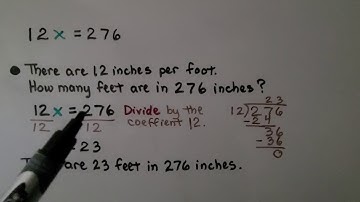 12x = 276
● There are 12 inches per foot.
How many feet are in 276 inches?
12x = 276 Divide by the
12 12 coeffient 12.
= 23
are 23 feet in 276 inches.
23
12)276
-24
36
-36
0